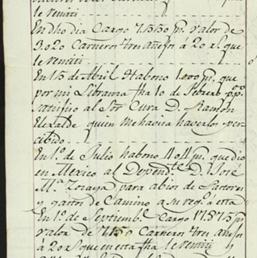 le remiti
En dho dia Cargo 7.550 ps. valor de
3.020 Carneros tres añejos à 20 rs. que
le remiti
En 15 de Abril Habono 1.000 ps. que
por mi Libranza fha 10 de Febrero ppo.
satisfizo al Sor. Cura D. Ramon
quien me havia hacerlos per-
cibido
En 1º. de Julio habono 4.011 ps. que dio
en Mexico al Dependte. D. José
Mª. Zozaya para abios de Pastores
y gastos de Camino a su regª. esta
En 1º. de Septiembe. Cargo 17.875 ps.
valor de 7.150 Carneros tres añejos
à 20 rs. que en esta fha le remiti